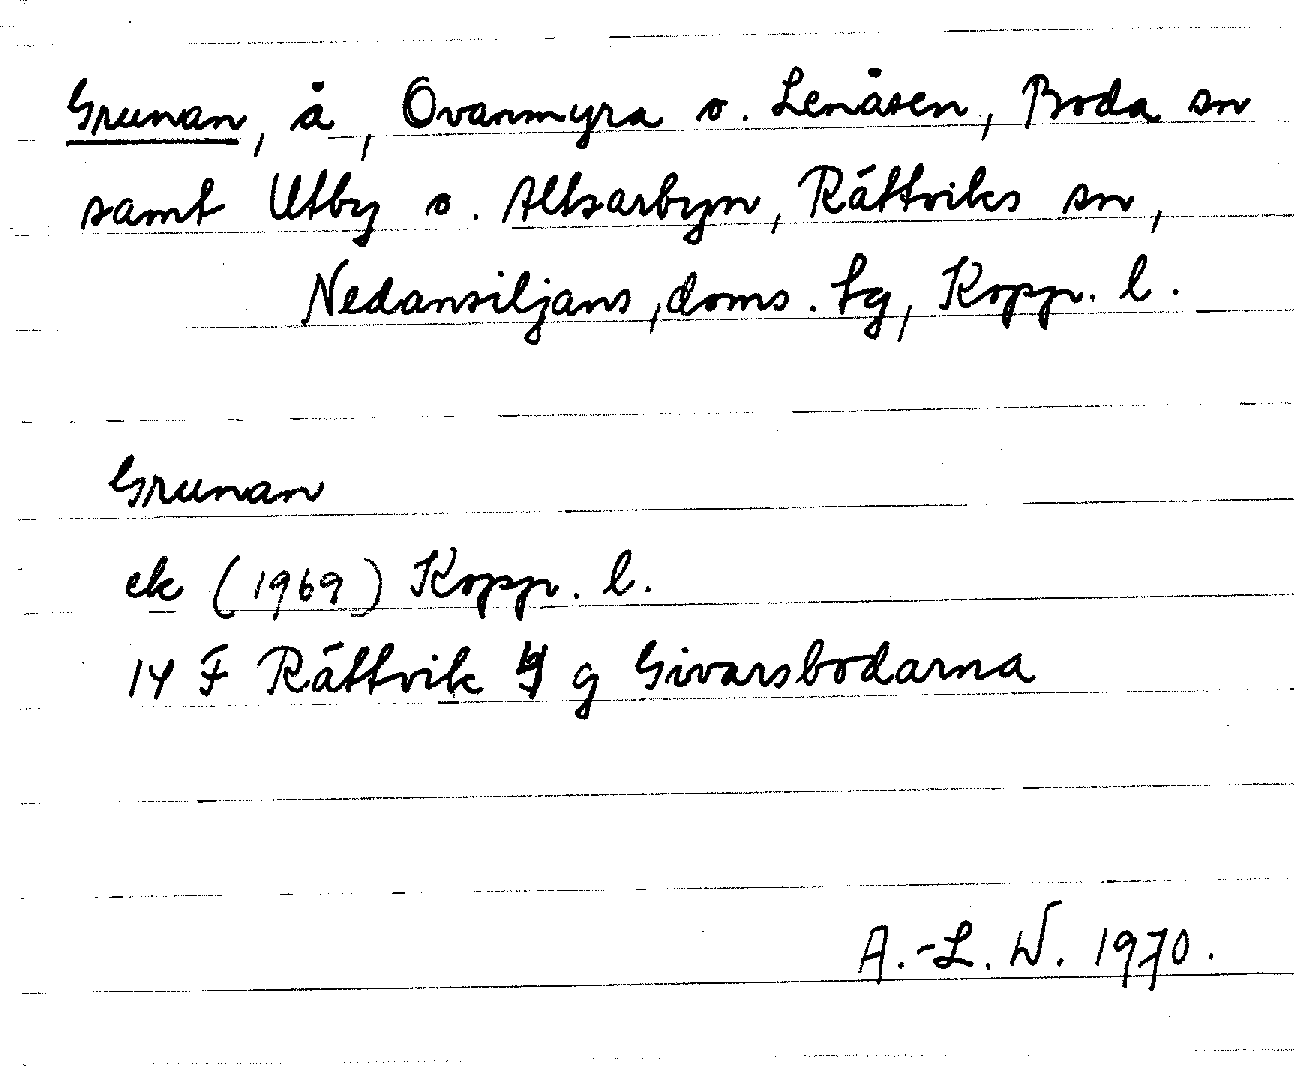 Grunan, å, Ovanmyra o. Lenåsen, Boda sn
samt Utby o. Altsarbyn, Rättviks sn,
Nedansiljans, doms. tg, Kopp. l.
Grunan
ek (1969) Kopp. l.
14 F Rättvik g Givarsbodarna
A.-L. W. 1970.